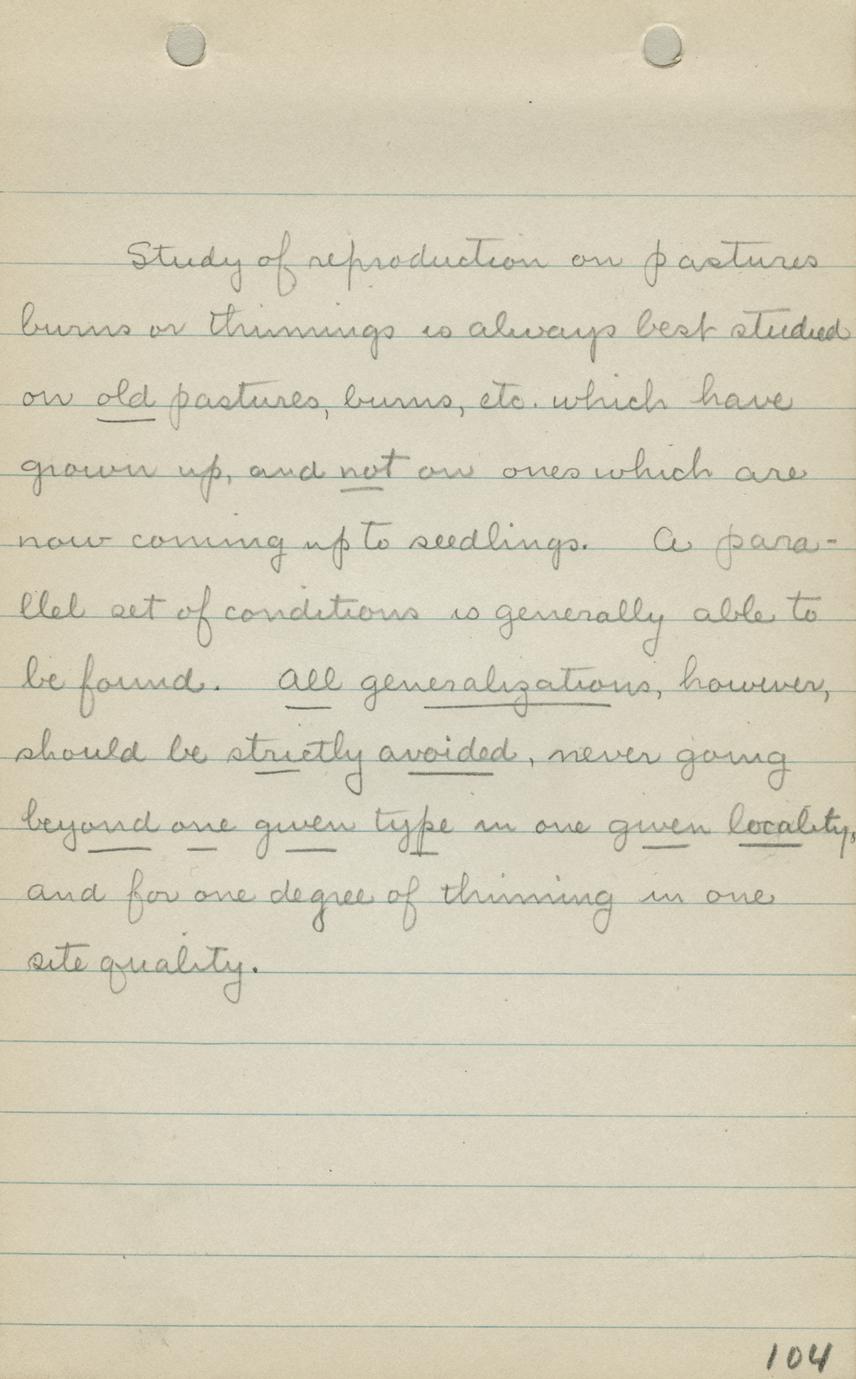 Study of reproduction on pastures
burns or thinnings is always best studied
on old pastures, burns, etc. which have
grown up, and not on ones which are
now coming up to seedlings. A para-
llel set of conditions is generally able to
be found. All generalizations, however,
should be strictly avoided, never going
beyond one given type in one given locality,
and for one degree of thinning in one
site quality.
104